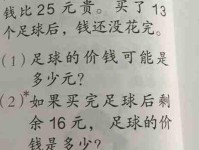 钱比 25 元贵。买了 13
个足球后，钱还没花完。
(1) 足球的价钱可能是
多少元？
(2)*如果买完足球后剩
余 16 元，足球的价
钱是多少？